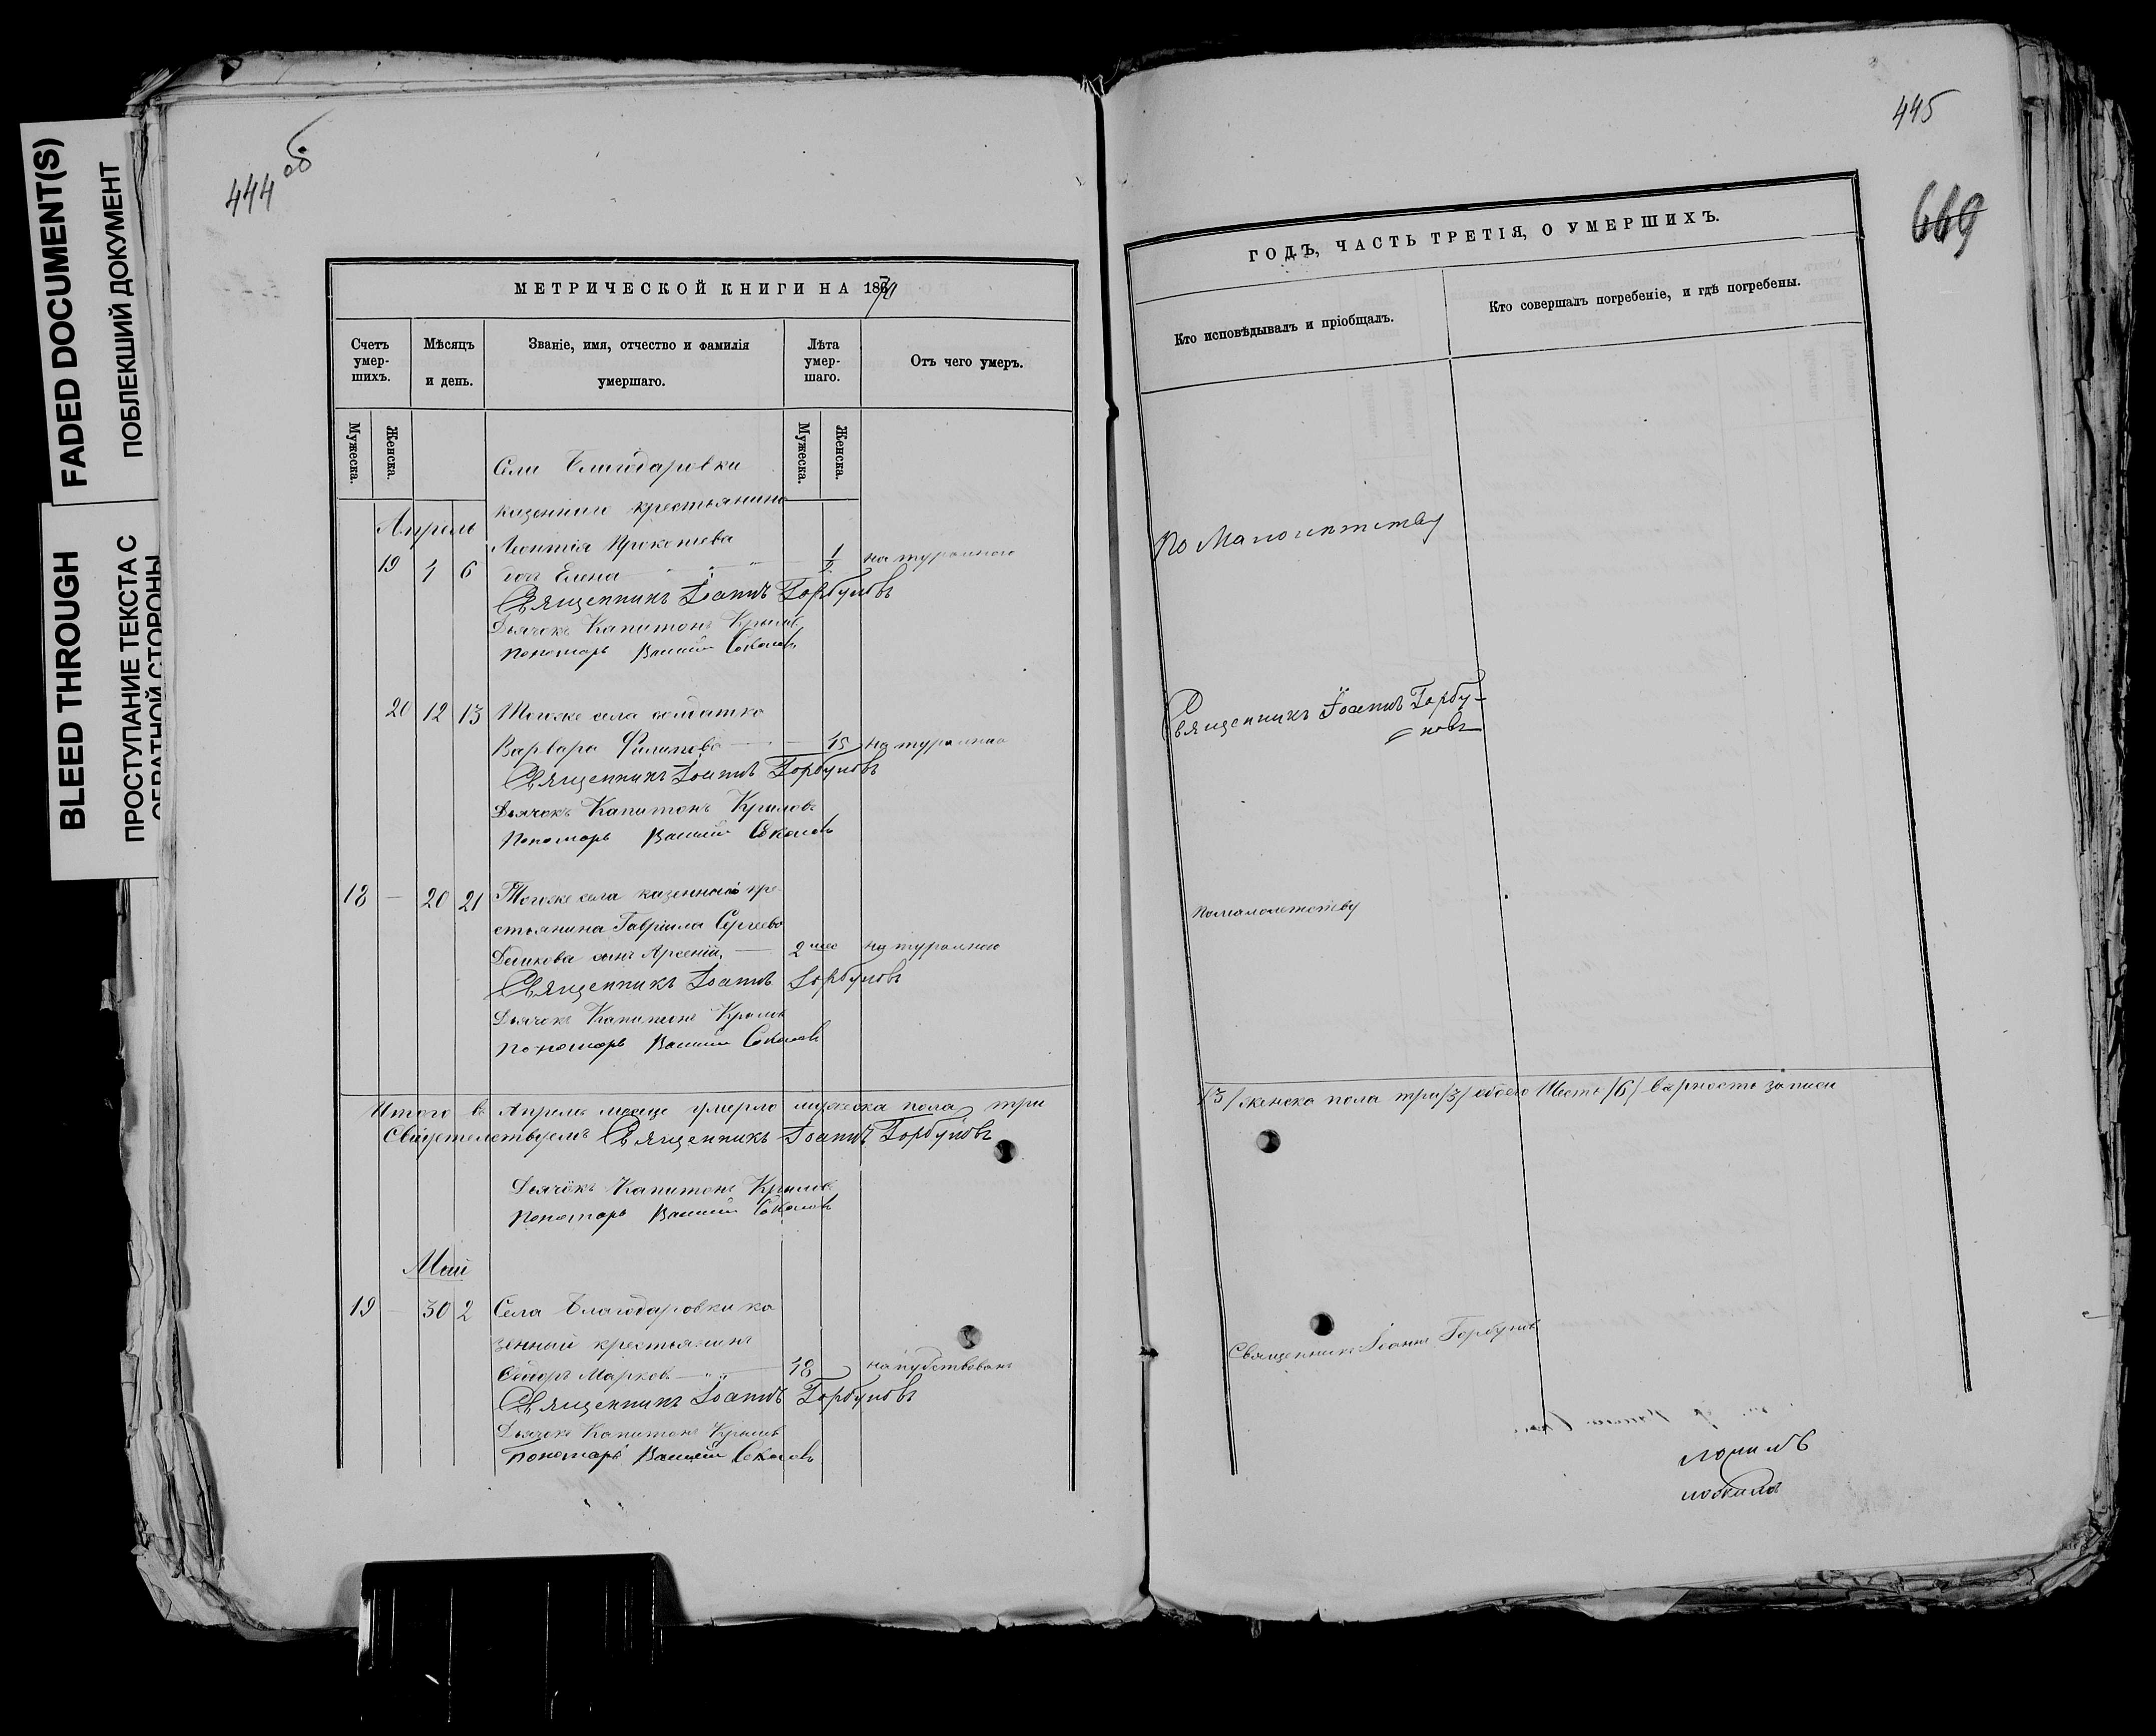 FADED DOCUMENT(S)
ПОБЛЕКШИЙ ДОКУМЕНТ
BLEED THROUGH
ПРОСТУПАНИЕ ТЕКСТА С
ОБРАТНОЙ СТОРОНЫ
444 об
МЕТРИЧЕСКОЙ КНИГИ НА 1870
Счетъ умер-шихъ.
Мѣсяцъ и день.
Званіе, имя, отчество и фамилія умершаго.
Лѣта умер-шаго.
Отъ чего умеръ.
Мужеска.
Женска.
Мужеска.
Женска.
Села Благодаровки
казеннаго крестьянина
Апрель
Леонтія Прокопева
19 4 6 Елена 1 натурально
Священникъ Іоаннъ Горбуновъ
Дьячокъ Капитонъ Крыловъ
Пономарь Василій Соколовъ
20 12 13 Тогоже села солдатка
Варвара Филипова 45 натурально
Священникъ Іоаннъ Горбуновъ
Дьячокъ Капитонъ Крыловъ
Пономарь Василій Соколовъ
18 – 20 21 Тогоже села казеннаго кре
стьянина Гавріила Сергеева
сынъ Арсеній 2 мес натурально
Священникъ Іоаннъ Горбуновъ
Дьячокъ Капитонъ Крыловъ
Пономарь Василій Соколовъ
Итого въ Апреле месяце умерло мужеска пола три
Свидетелствуемъ Священникъ Іоаннъ Горбуновъ
Дьячокъ Капитонъ Крыловъ
Пономарь Василій Соколовъ
Май
19 – 30 2 Села Благодаровки ка
зенный крестьянинъ
Ѳедоръ Марковъ 48
Священникъ Іоаннъ Горбуновъ
Дьячокъ Капитонъ Крыловъ
Пономарь Василій Соколовъ
445
669
ГОДЪ, ЧАСТЬ ТРЕТІЯ, О УМЕРШИХЪ.
Кто исповѣдывалъ и пріобщалъ.
Кто совершалъ погребеніе, и гдѣ погребены.
По Малолетству
Священникъ Іоаннъ Горбу-
новъ
Помалолетству
/3/ женска пола три /3/ обоего Шесть /6/ верность записи
Священникъ Іоаннъ Горбуновъ